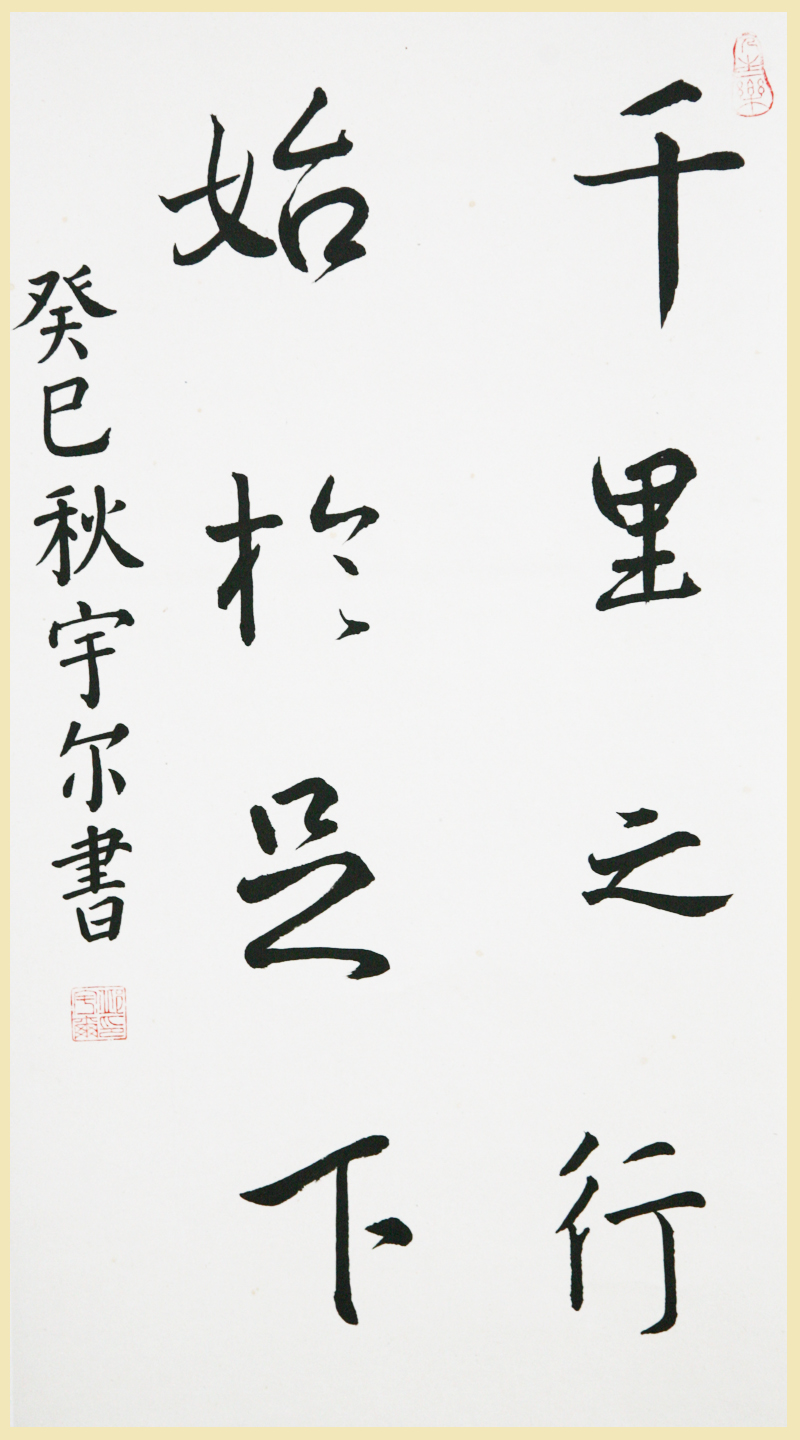 千里之行
始於足下
癸巳秋宇尔書